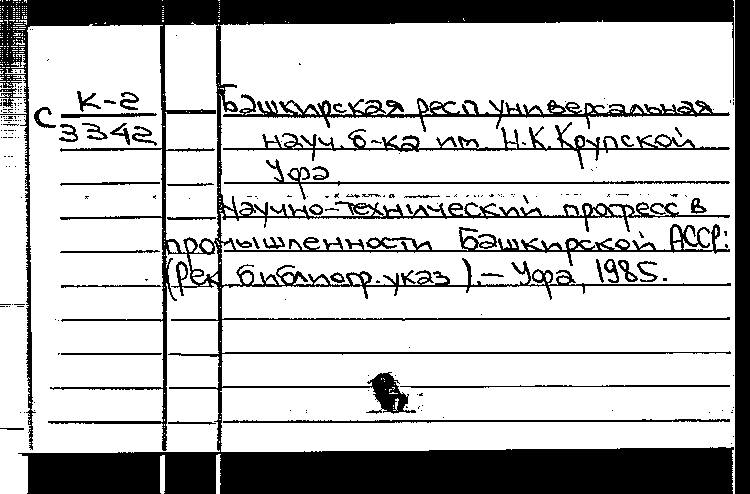 С К-2
3342
Башкирская респ. универсальная
науч. б-ка им. Н.К. Крупской
Уфа
Научно-технический прогресс в
промышленности Башкирской АССР:
(Рек. библиогр. указ.). – Уфа, 1985.